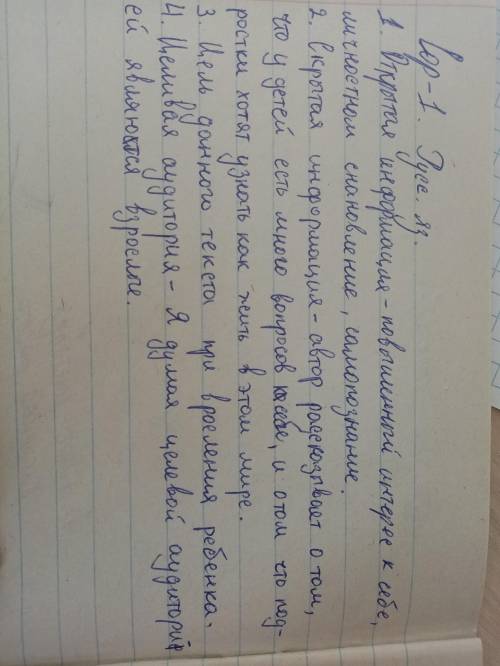 Вар-1. Русс. яз.
1. Открытая информация - повышинный интерес к себе,
личностном становление, самопознание.
2. Скрытая информация - автор рассказывает о том,
что у детей есть много вопросов к себе, и о том что под-
ростки хотят узнать как жить в этом мире.
3. Цель данного текста при вросления ребенка.
4. Целивая аудитория - Я думая целевой аудитори
ей являются взрослые.